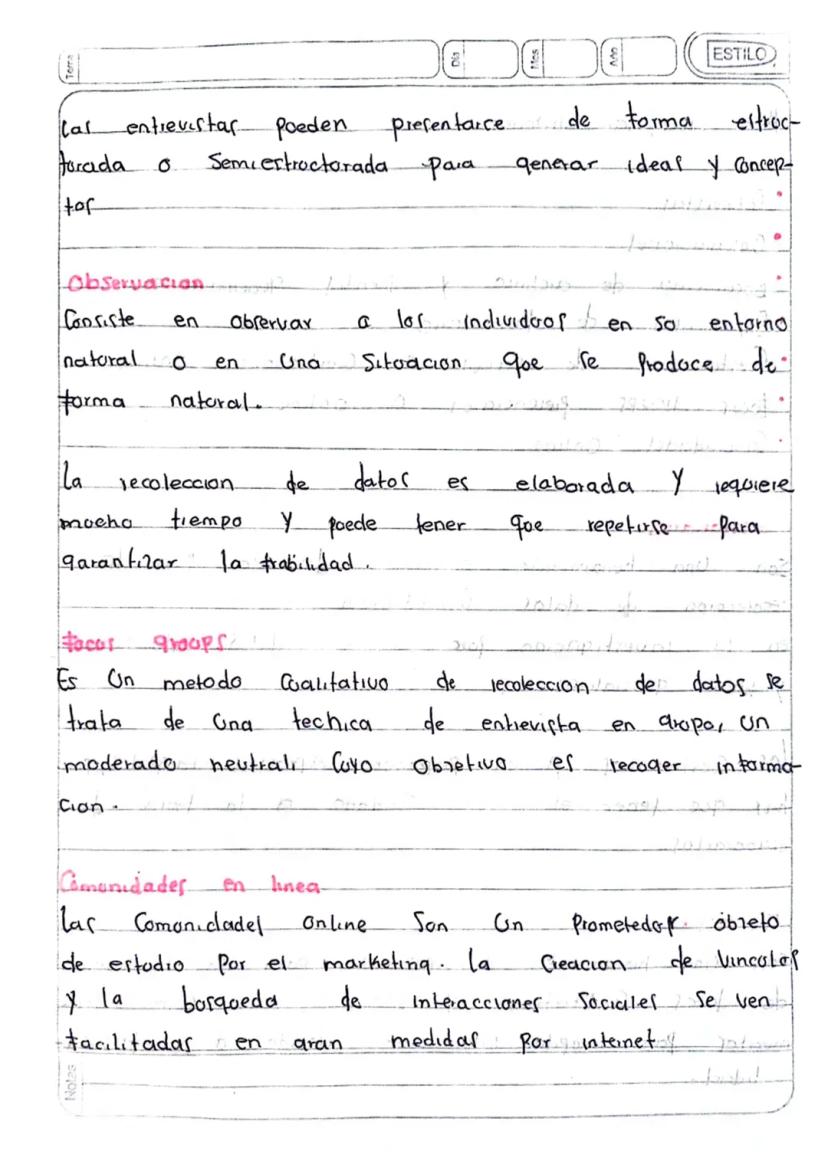 Tema
Dia
Mes
Año
ESTILO
las entrevistas pueden presentarce de forma estruc-
turada o Semiestructurada para generar ideas y Concep-
tos
Observacion
Consiste en obervar a los individuos en su entorno
natural o en una Situacion que se Produce de
forma natural.
la recoleccion de datos es elaborada y requiere
mucho tiempo y puede tener que repetirse para
garantizar la fiabilidad.
focus groups
Es un metodo Cualitativo de recoleccion de datos se
trata de una technica de entrevista en grupo, un
moderado neutral, Cuyo Objetivo es recoger informa-
cion.
Comunidades en linea
las Comunidades Online Son un Prometedor objeto
de estudio Por el marketing. la Creacion de Vinculos
y la busqueda de interacciones Sociales Se ven
facilitadas en gran medidas por internet
Notas